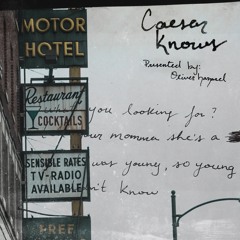 MOTOR
HOTEL
Restaurant
COCKTAILS
SENSIBLE RATES
TV-RADIO
AVAILABLE
FREE
Caesar
Knows
Presented by:
Oliver
you looking for?
your momma she's a
was young, so young
n't know